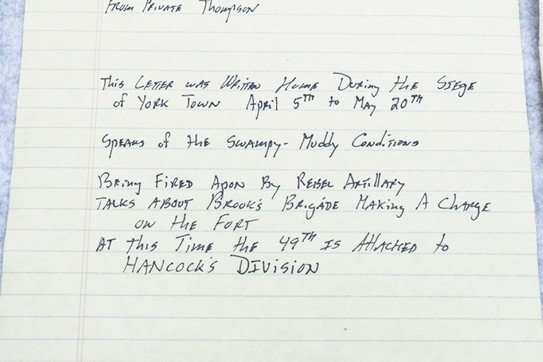 From Private Thompson
This Letter was Written Home During the Siege
of York Town April 5TH to May 20TH
Speaks of the Swampy-Muddy Conditions
Bring Fired Apon By Rebel Artillary
Talks About Brook's Brigade Making A Charge
on the Fort
At this Time the 49TH is Attacked to
Hancock's Division